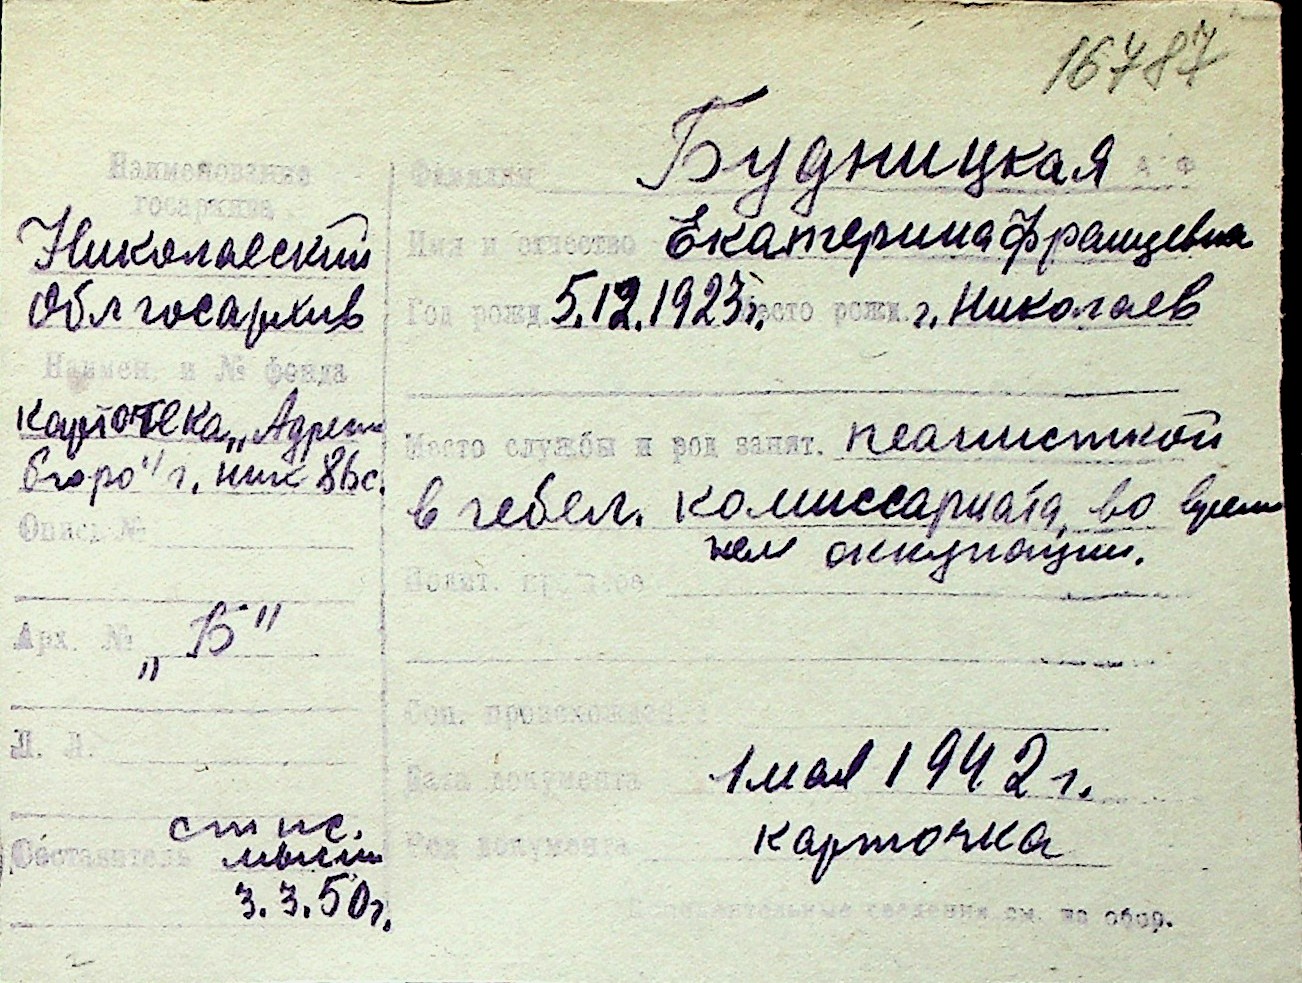 16787
Наименование
госархива
Николаевский
облгосархив
Наимен. и № фонда
картотека „Адресн
бюро" г. ник 86с.
Опись №
Арх. № „Б"
Л. Л.
ст нс.
Составитель
3.3.50г.
Фамилия Будницкая
Имя и отчество Екатерина Францевна
Год рожд. 5.12.1923г. Место рожд. г. Николаев
Место службы и род занят. пеанисткой
в гебел. комиссариата, во время
нем оккупации.
Полит. прошлое
Соц. происхожден.
Дата документа 1 мая 1942 г.
Род документа карточка
Дополнительные сведения см. на обор.